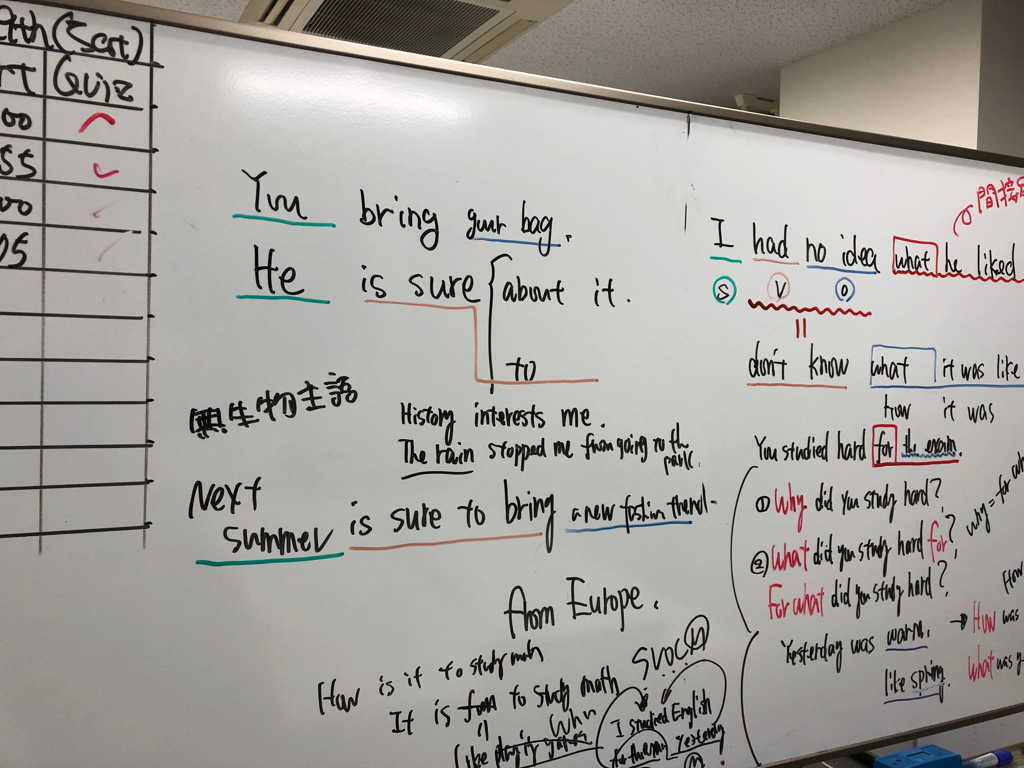 (Sat)
Quiz
00
55
00
05
You bring your bag.
He is sure about it.
to
無生物主語
History interests me.
The rain stopped me from going to the park.
Next
summer is sure to bring a new
from Europe.
How is it to study math
It is to study math
like
SVOC M
I studied English
yesterday
M
I had no idea what he liked
S V O
don't know what it was like
how it was
You studied hard for the exam.
① Why did you study hard?
② What did you study hard for?
For what did you study hard?
why = for
Yesterday was warm. → How was
like spring. What was
How